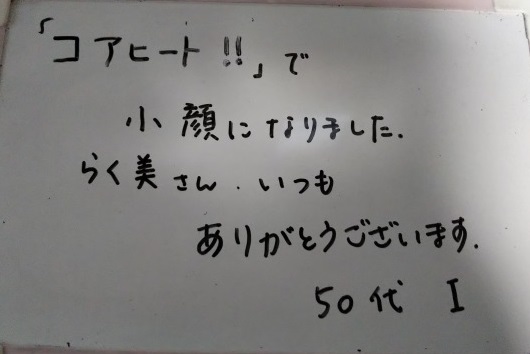 「コアヒート!!」で
小顔になりました.
らく美さん.いつも
ありがとうございます.
50代 I